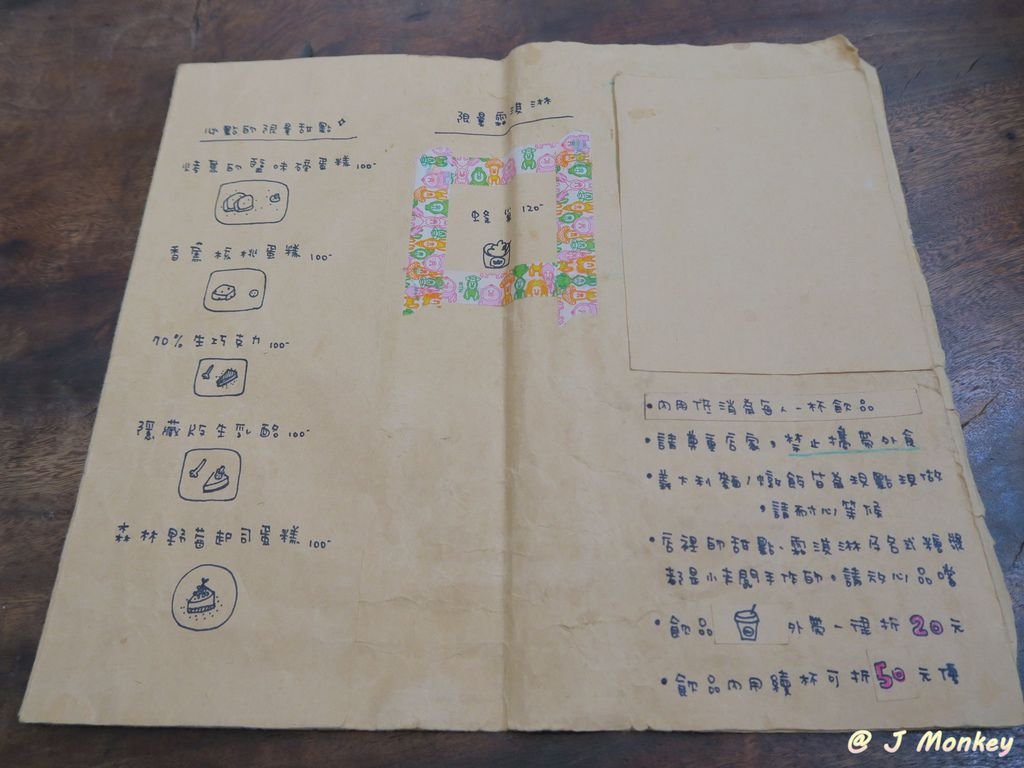 必點的限量甜點
烤焦的鹽味磅蛋糕 100-
香蕉核桃蛋糕 100-
70%生巧克力 100-
隱藏版生乳酪 100-
森林野莓起司蛋糕 100-
限量霜淇淋
蜂蜜 120-
•內用低消為每人一杯飲品
•請尊重店家,禁止攜帶外食
•義大利麵/燉飯皆為現點現做
•請耐心等候
•店裡的甜點、霜淇淋及各式糖漿
都是小夫妻手作的,請放心品嚐
•飲品 外帶一律折20元
•飲品內用續杯可折50元優
@ J Monkey